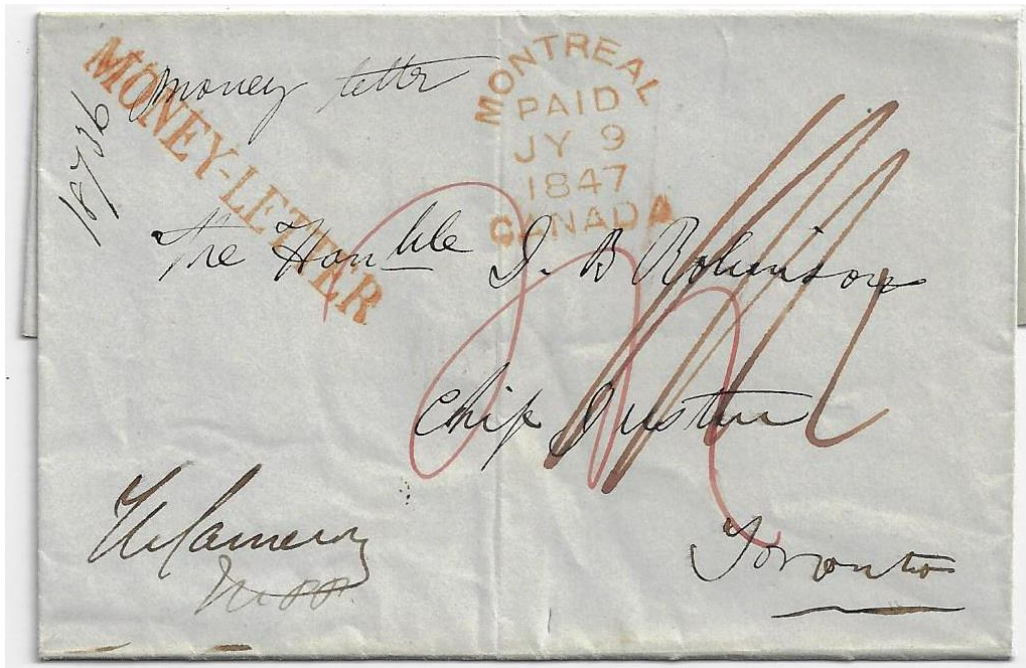 MONEY-LETTER
money letter
MONTREAL
PAID
JY 9
1847
CANADA
The Honble J. B Robinson
Chief Justice
Toronto
Cameron